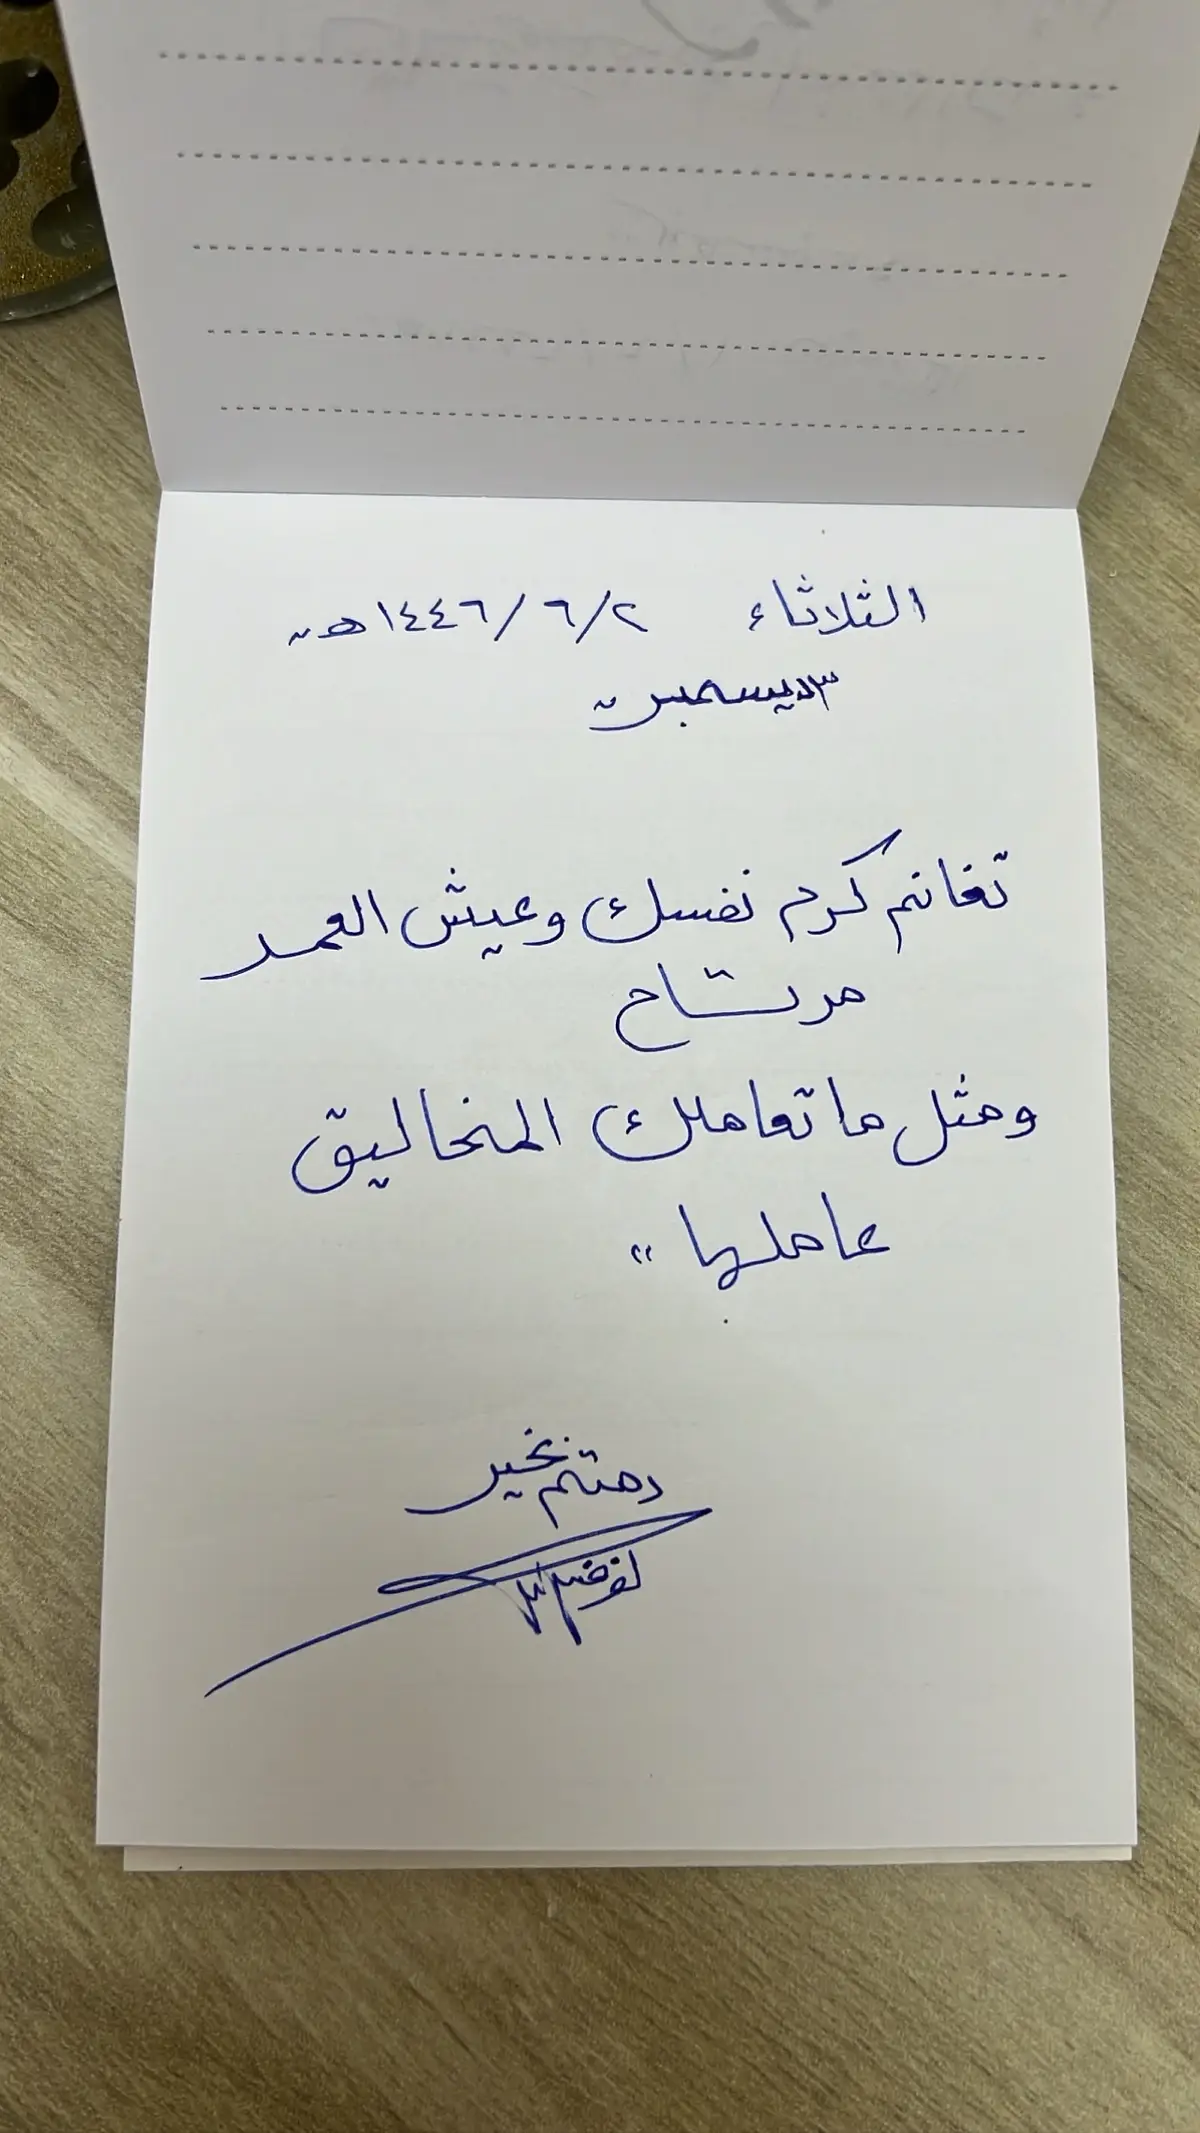 الثلاثاء ٢/٦/١٤٤٦هـ
٣ ديسمبر
تغانم كرم نفسك وعيش العمر
مرتاح
ومثل ما تعاملك المخاليق
عاملها "
دمتم بخير